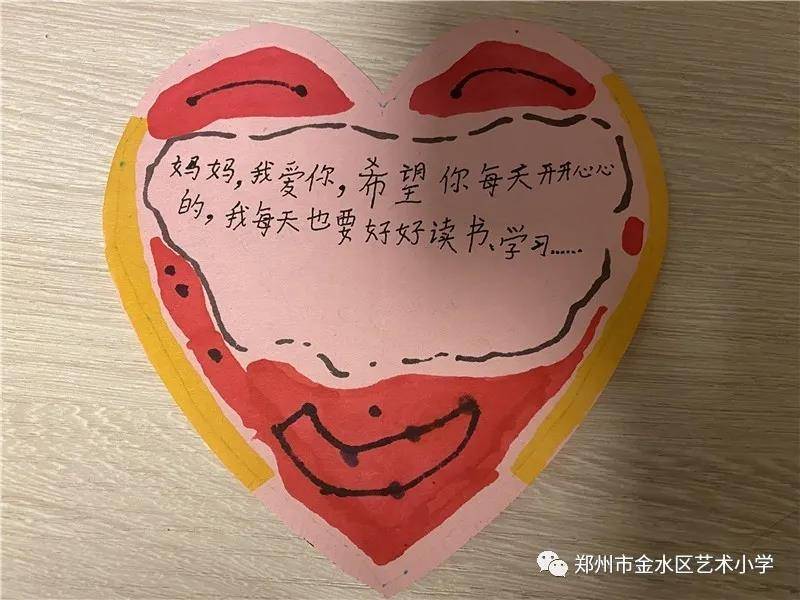 妈妈,我爱你,希望你每天开开心心
的,我每天也要好好读书、学习……
郑州市金水区艺术小学